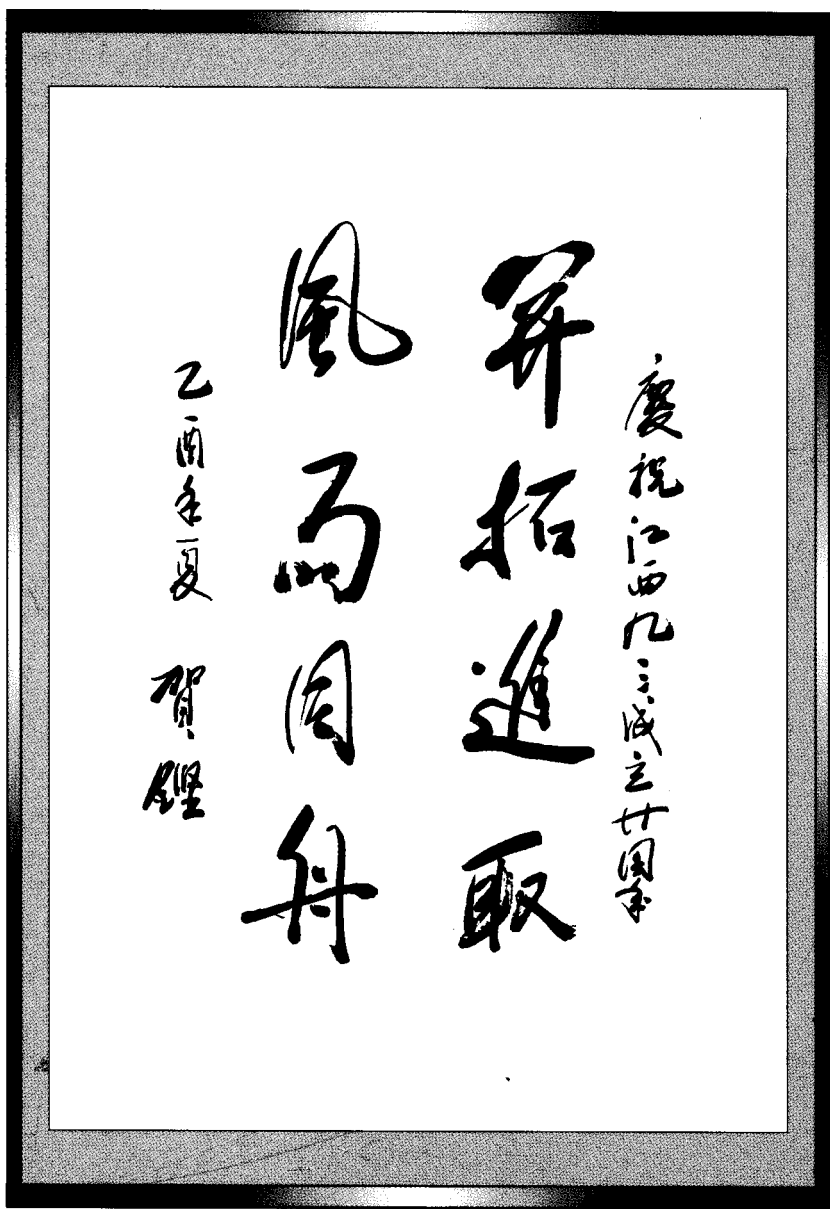 慶祝江西九三成立廿周年
開拓進取
風雨同舟
乙酉年夏 賀鏗